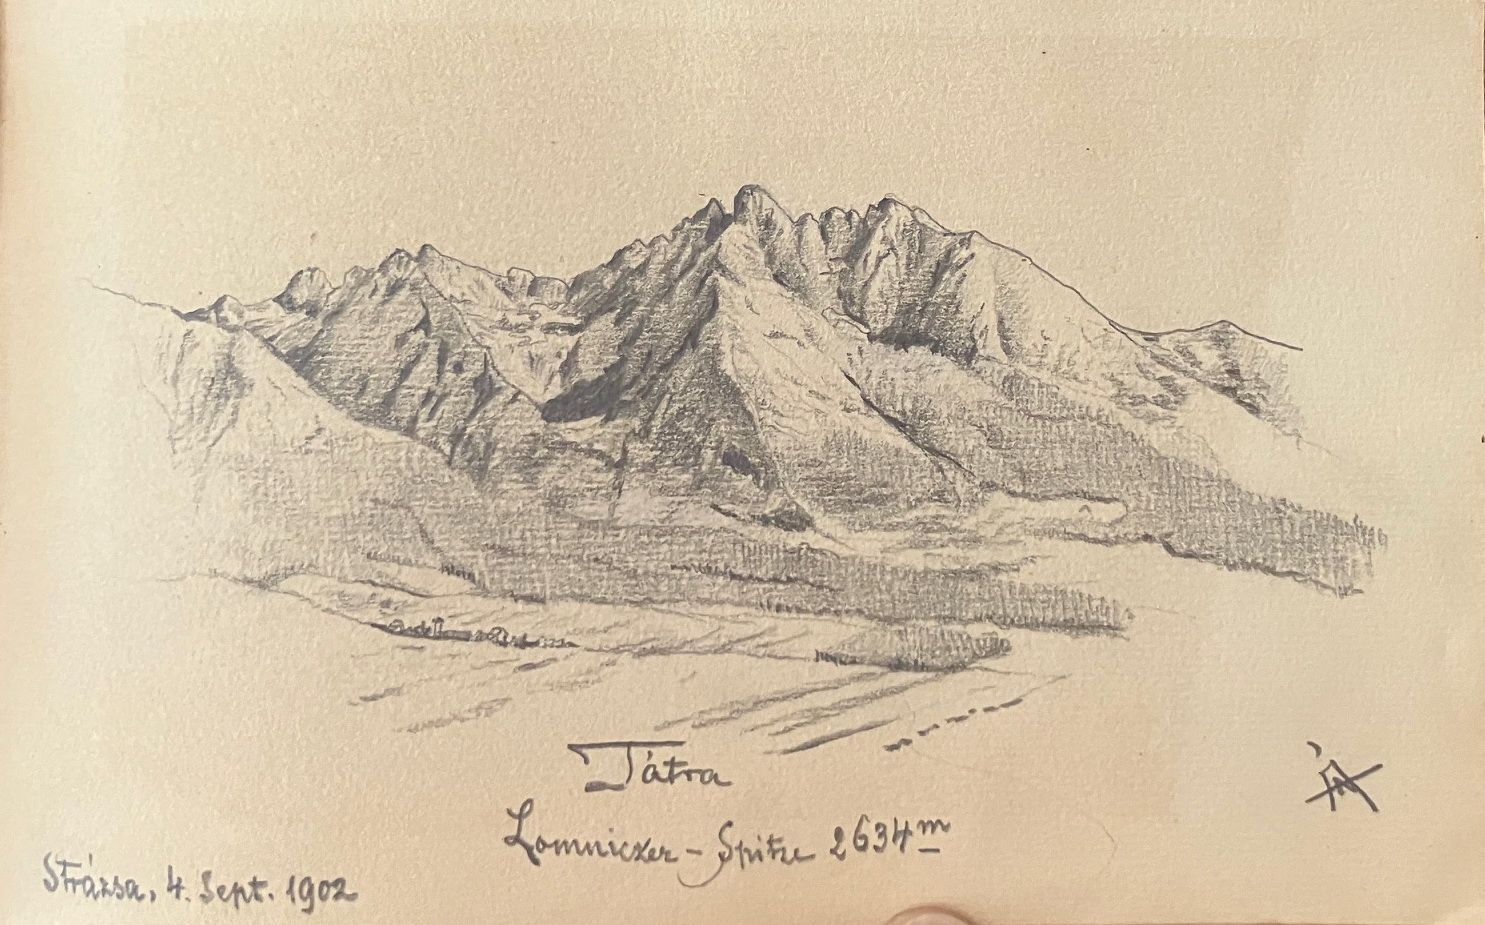 Tátra
Lomniczer-Spitze 2634m
Strázsa, 4. Sept. 1902